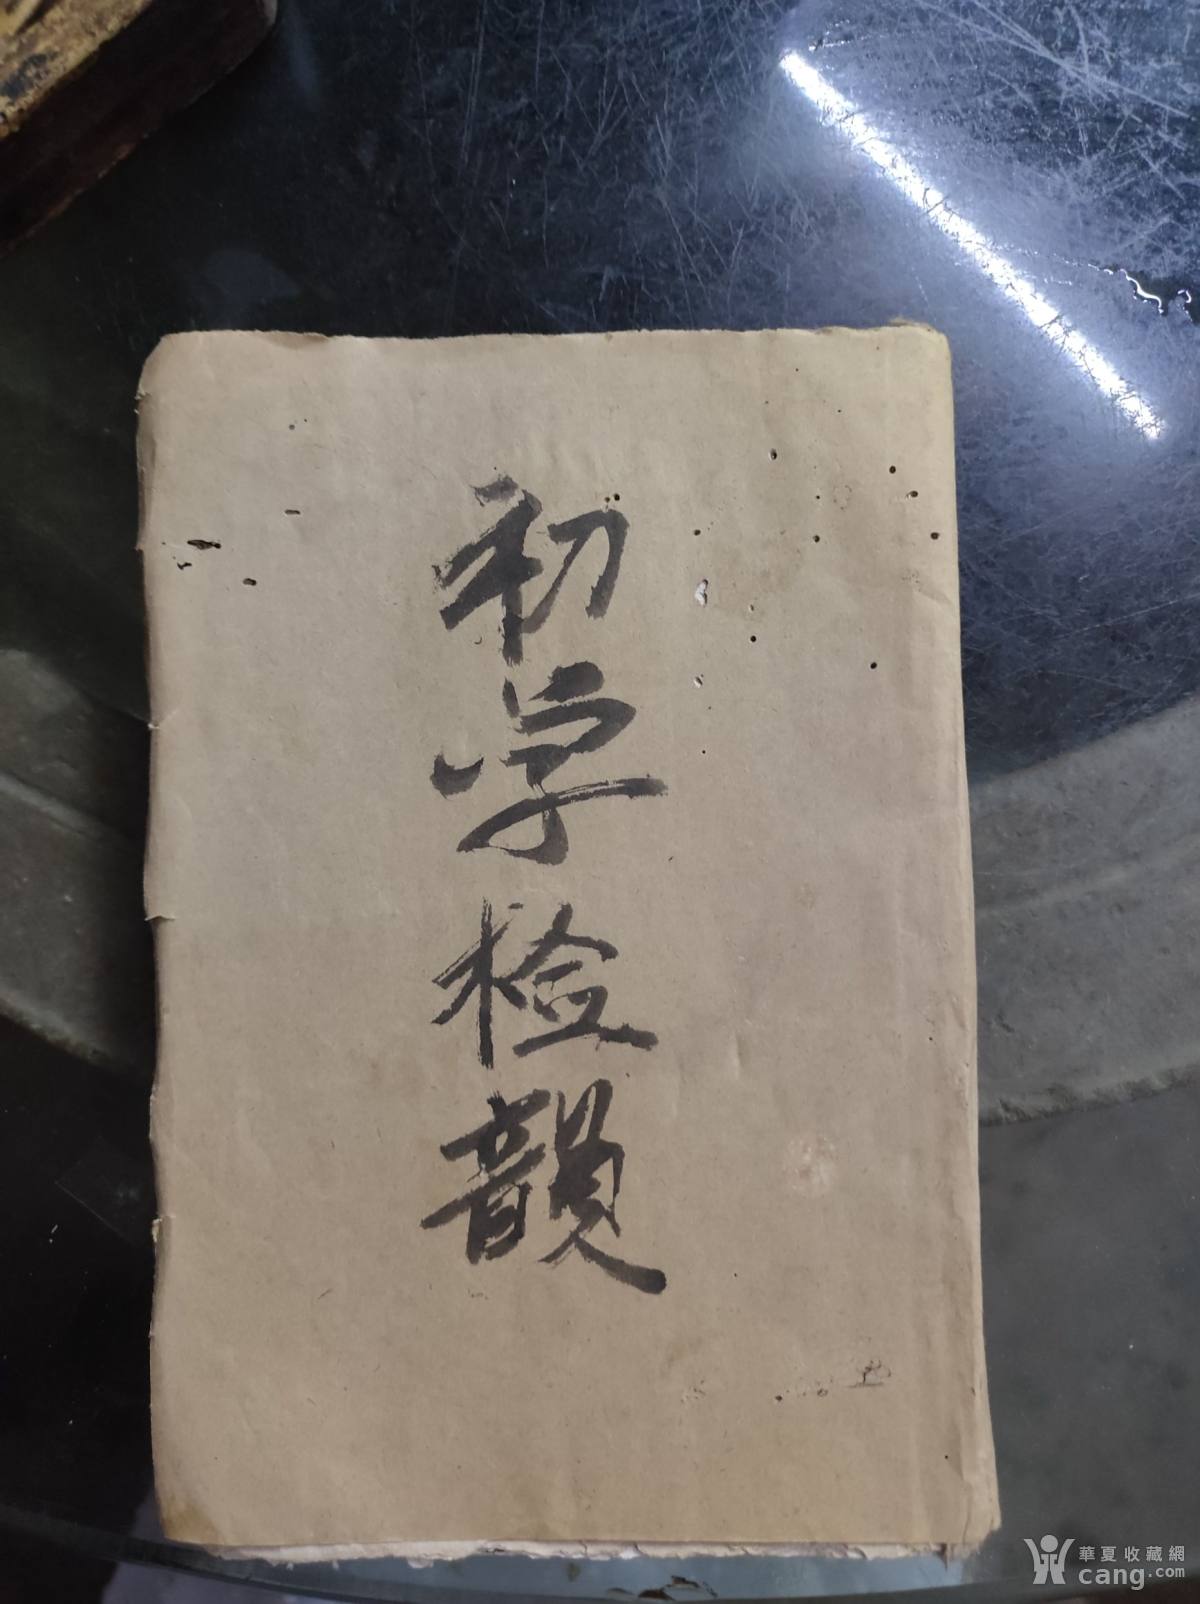 初学检韻
華夏收藏網
cang.com